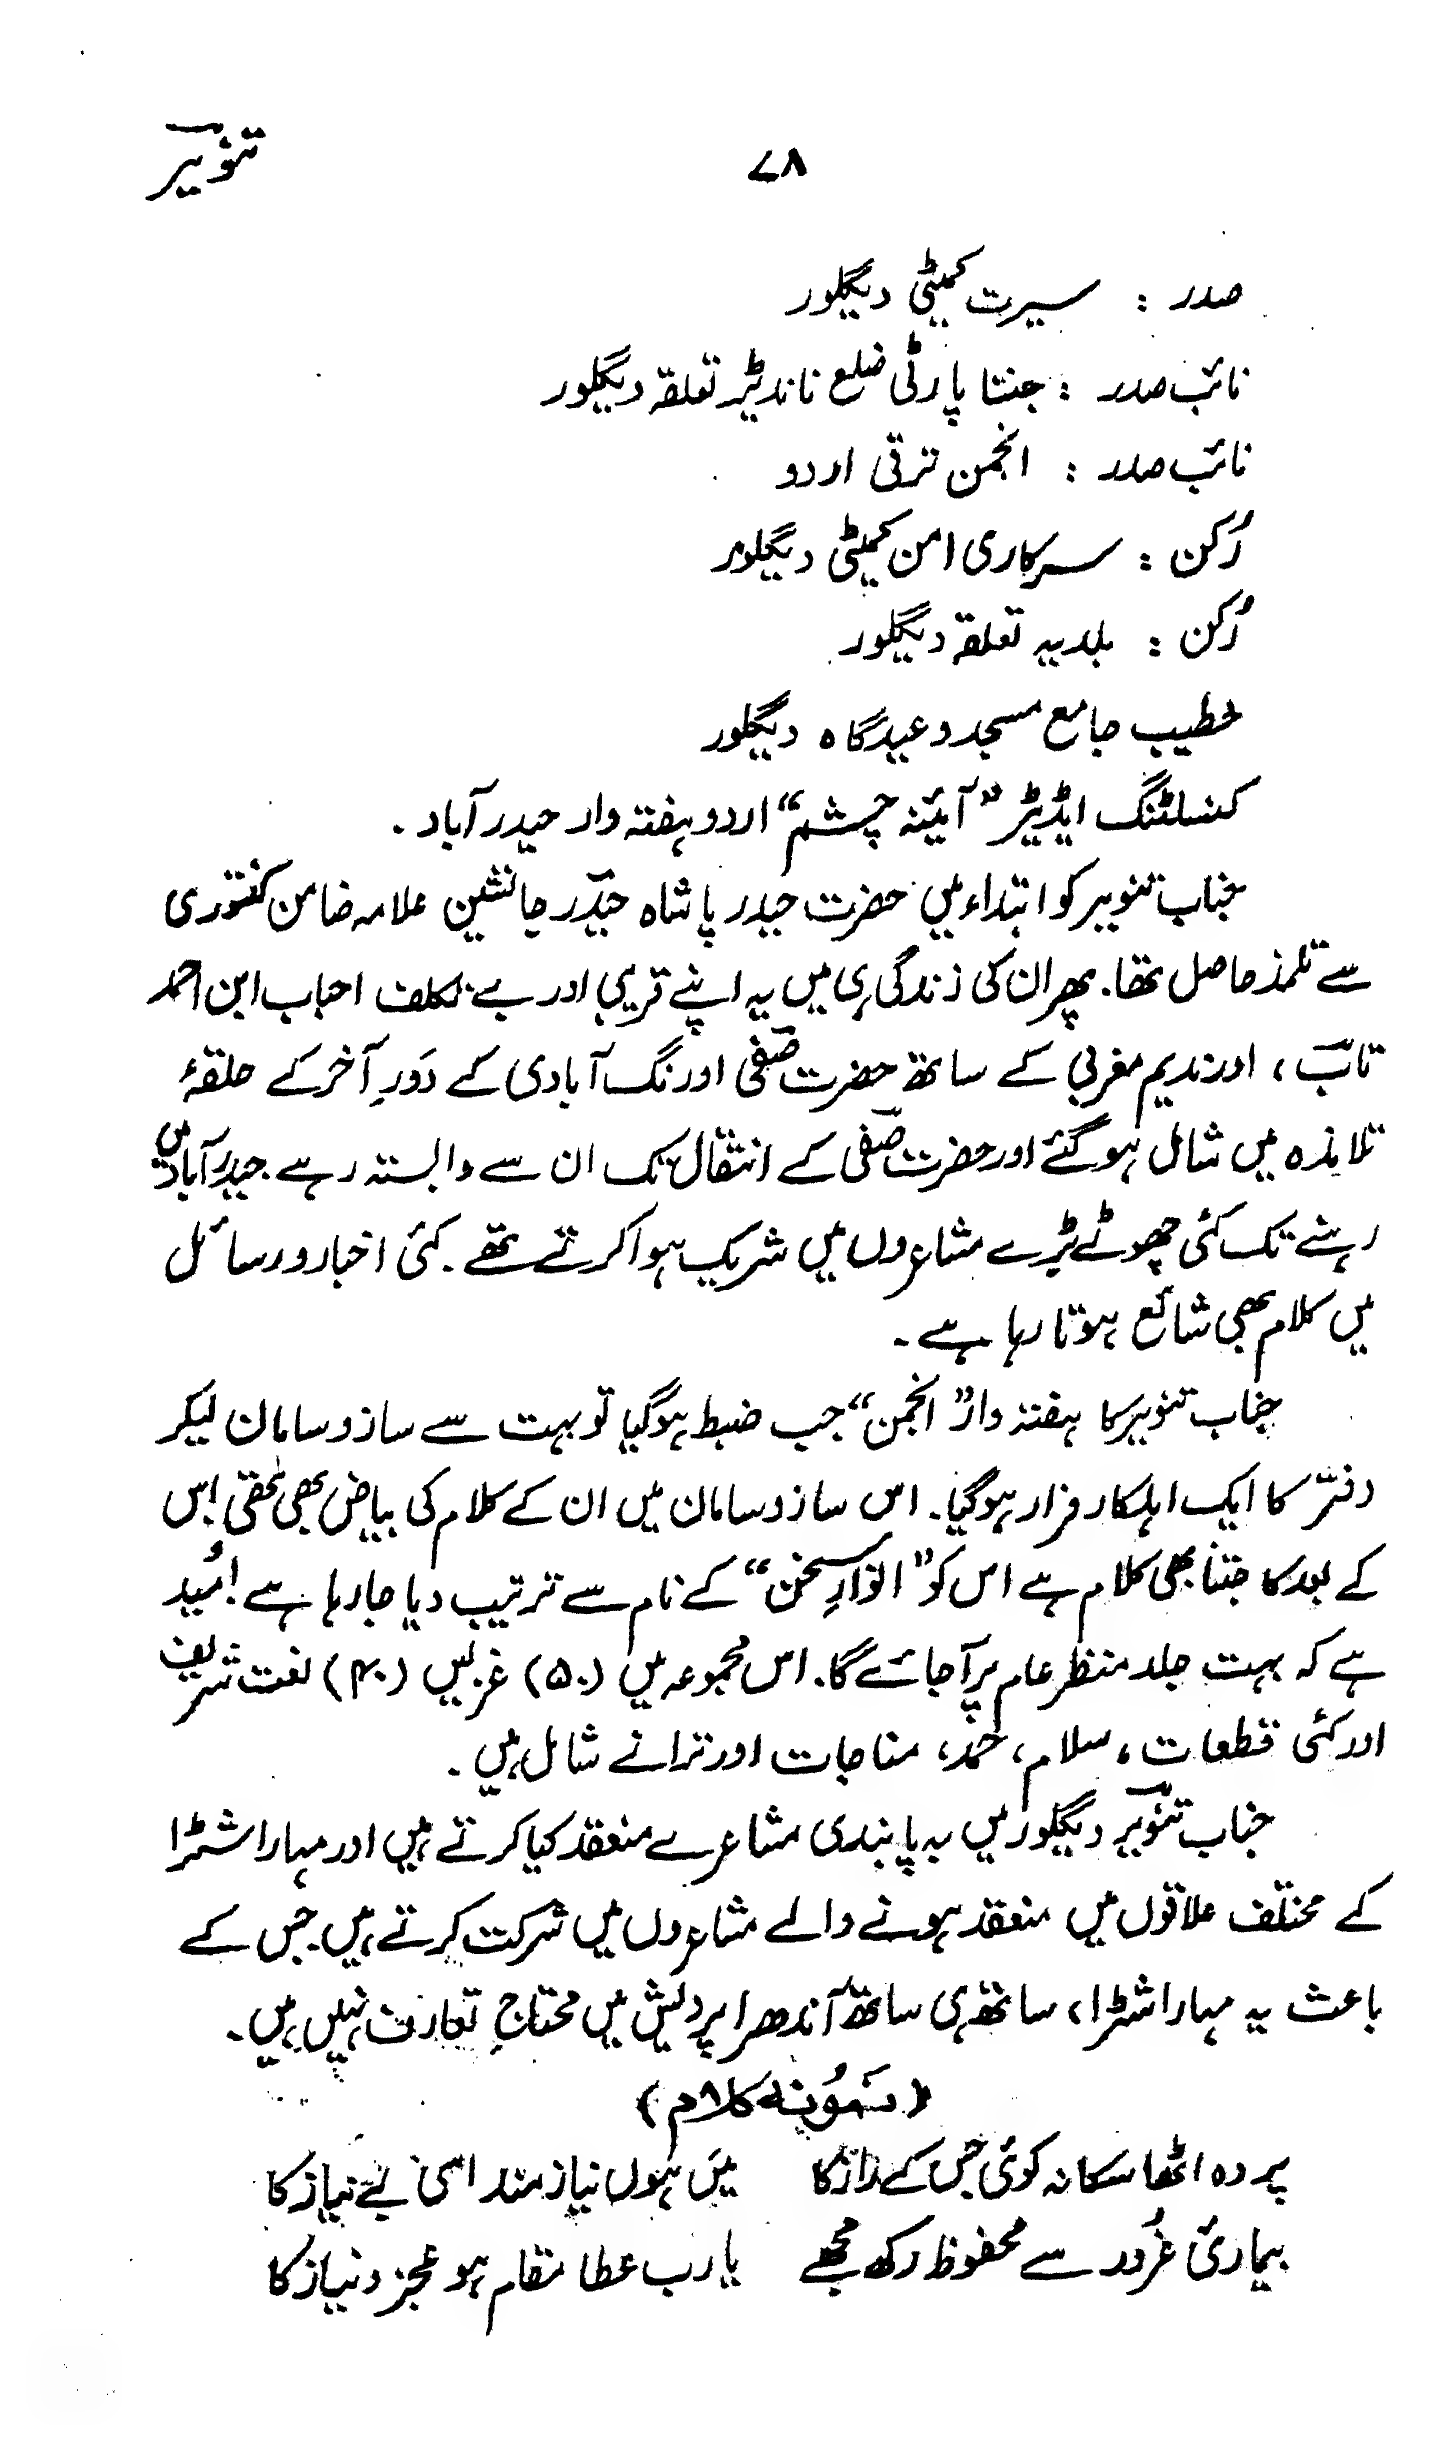 تنویرؔ
۷۸
صدر : سیرت کمیٹی دیگلور
نائب صدر : جنتا پارٹی ضلع ناندیڑ تعلقہ دیگلور
نائب صدر : انجمن ترقی اردو
رُکن : سرکاری امن کمیٹی دیگلور
رُکن : بلدیہ تعلقہ دیگلور
خطیب جامع مسجد و عیدگاہ دیگلور
کنسلٹنگ ایڈیٹر ”آئینہ چشم“ اردو ہفتہ وار حیدرآباد۔
جناب تنویر کو ابتداء میں حضرت حیدر پاشاہ حیدؔر جانشین علامہ ضامن کنتوری
سے تلمذ حاصل تھا۔ پھر ان کی زندگی ہی میں یہ اپنے قریبی اور بے تکلف احباب ابن احمد
تابؔ، اور ندیم مغربی کے ساتھ حضرت صفیؔ اورنگ آبادی کے دَورِ آخر کے حلقۂ
تلامذہ میں شامل ہوگئے اور حضرت صفیؔ کے انتقال تک ان سے وابستہ رہے۔ حیدرآباد میں
رہنے تک کئی چھوٹے بڑے مشاعروں میں شریک ہوا کرتے تھے۔ کئی اخبار و رسائل
میں کلام بھی شائع ہوتا رہا ہے۔
جناب تنویر کا ہفتہ وار ”انجمن“ جب ضبط ہوگیا تو بہت سے ساز و سامان لیکر
دفتر کا ایک اہلکار فرار ہوگیا۔ اس ساز و سامان میں ان کے کلام کی بیاض بھی تھی اِس
کے بعد کا جتنا بھی کلام ہے اس کو ”انوارِ سخن“ کے نام سے ترتیب دیا جا رہا ہے اُمید
ہے کہ بہت جلد منظر عام پر آجائے گا۔ اس مجموعہ میں (۵۰) غزلیں (۴۰) نعت شریف
اور کئی قطعات، سلام، حمد، مناجات اور ترانے شامل ہیں۔
جناب تنویرؔ دیگلور میں بہ پابندی مشاعرے منعقد کیا کرتے ہیں اور مہاراشٹرا
کے مختلف علاقوں میں منعقد ہونے والے مشاعروں میں شرکت کرتے ہیں۔ جس کے
باعث یہ مہاراشٹرا، ساتھ ہی ساتھ آندھرا پردیش میں محتاجِ تعارف نہیں ہیں۔
(نمُونہ کلام)
پردہ اٹھا سکا نہ کوئی جس کے راز کا میں ہوں نیاز مند اسی بے نیاز کا
بیماریٔ غرُور سے محفوظ رکھ مجھے یارب عطا مقام ہو عجز و نیاز کا